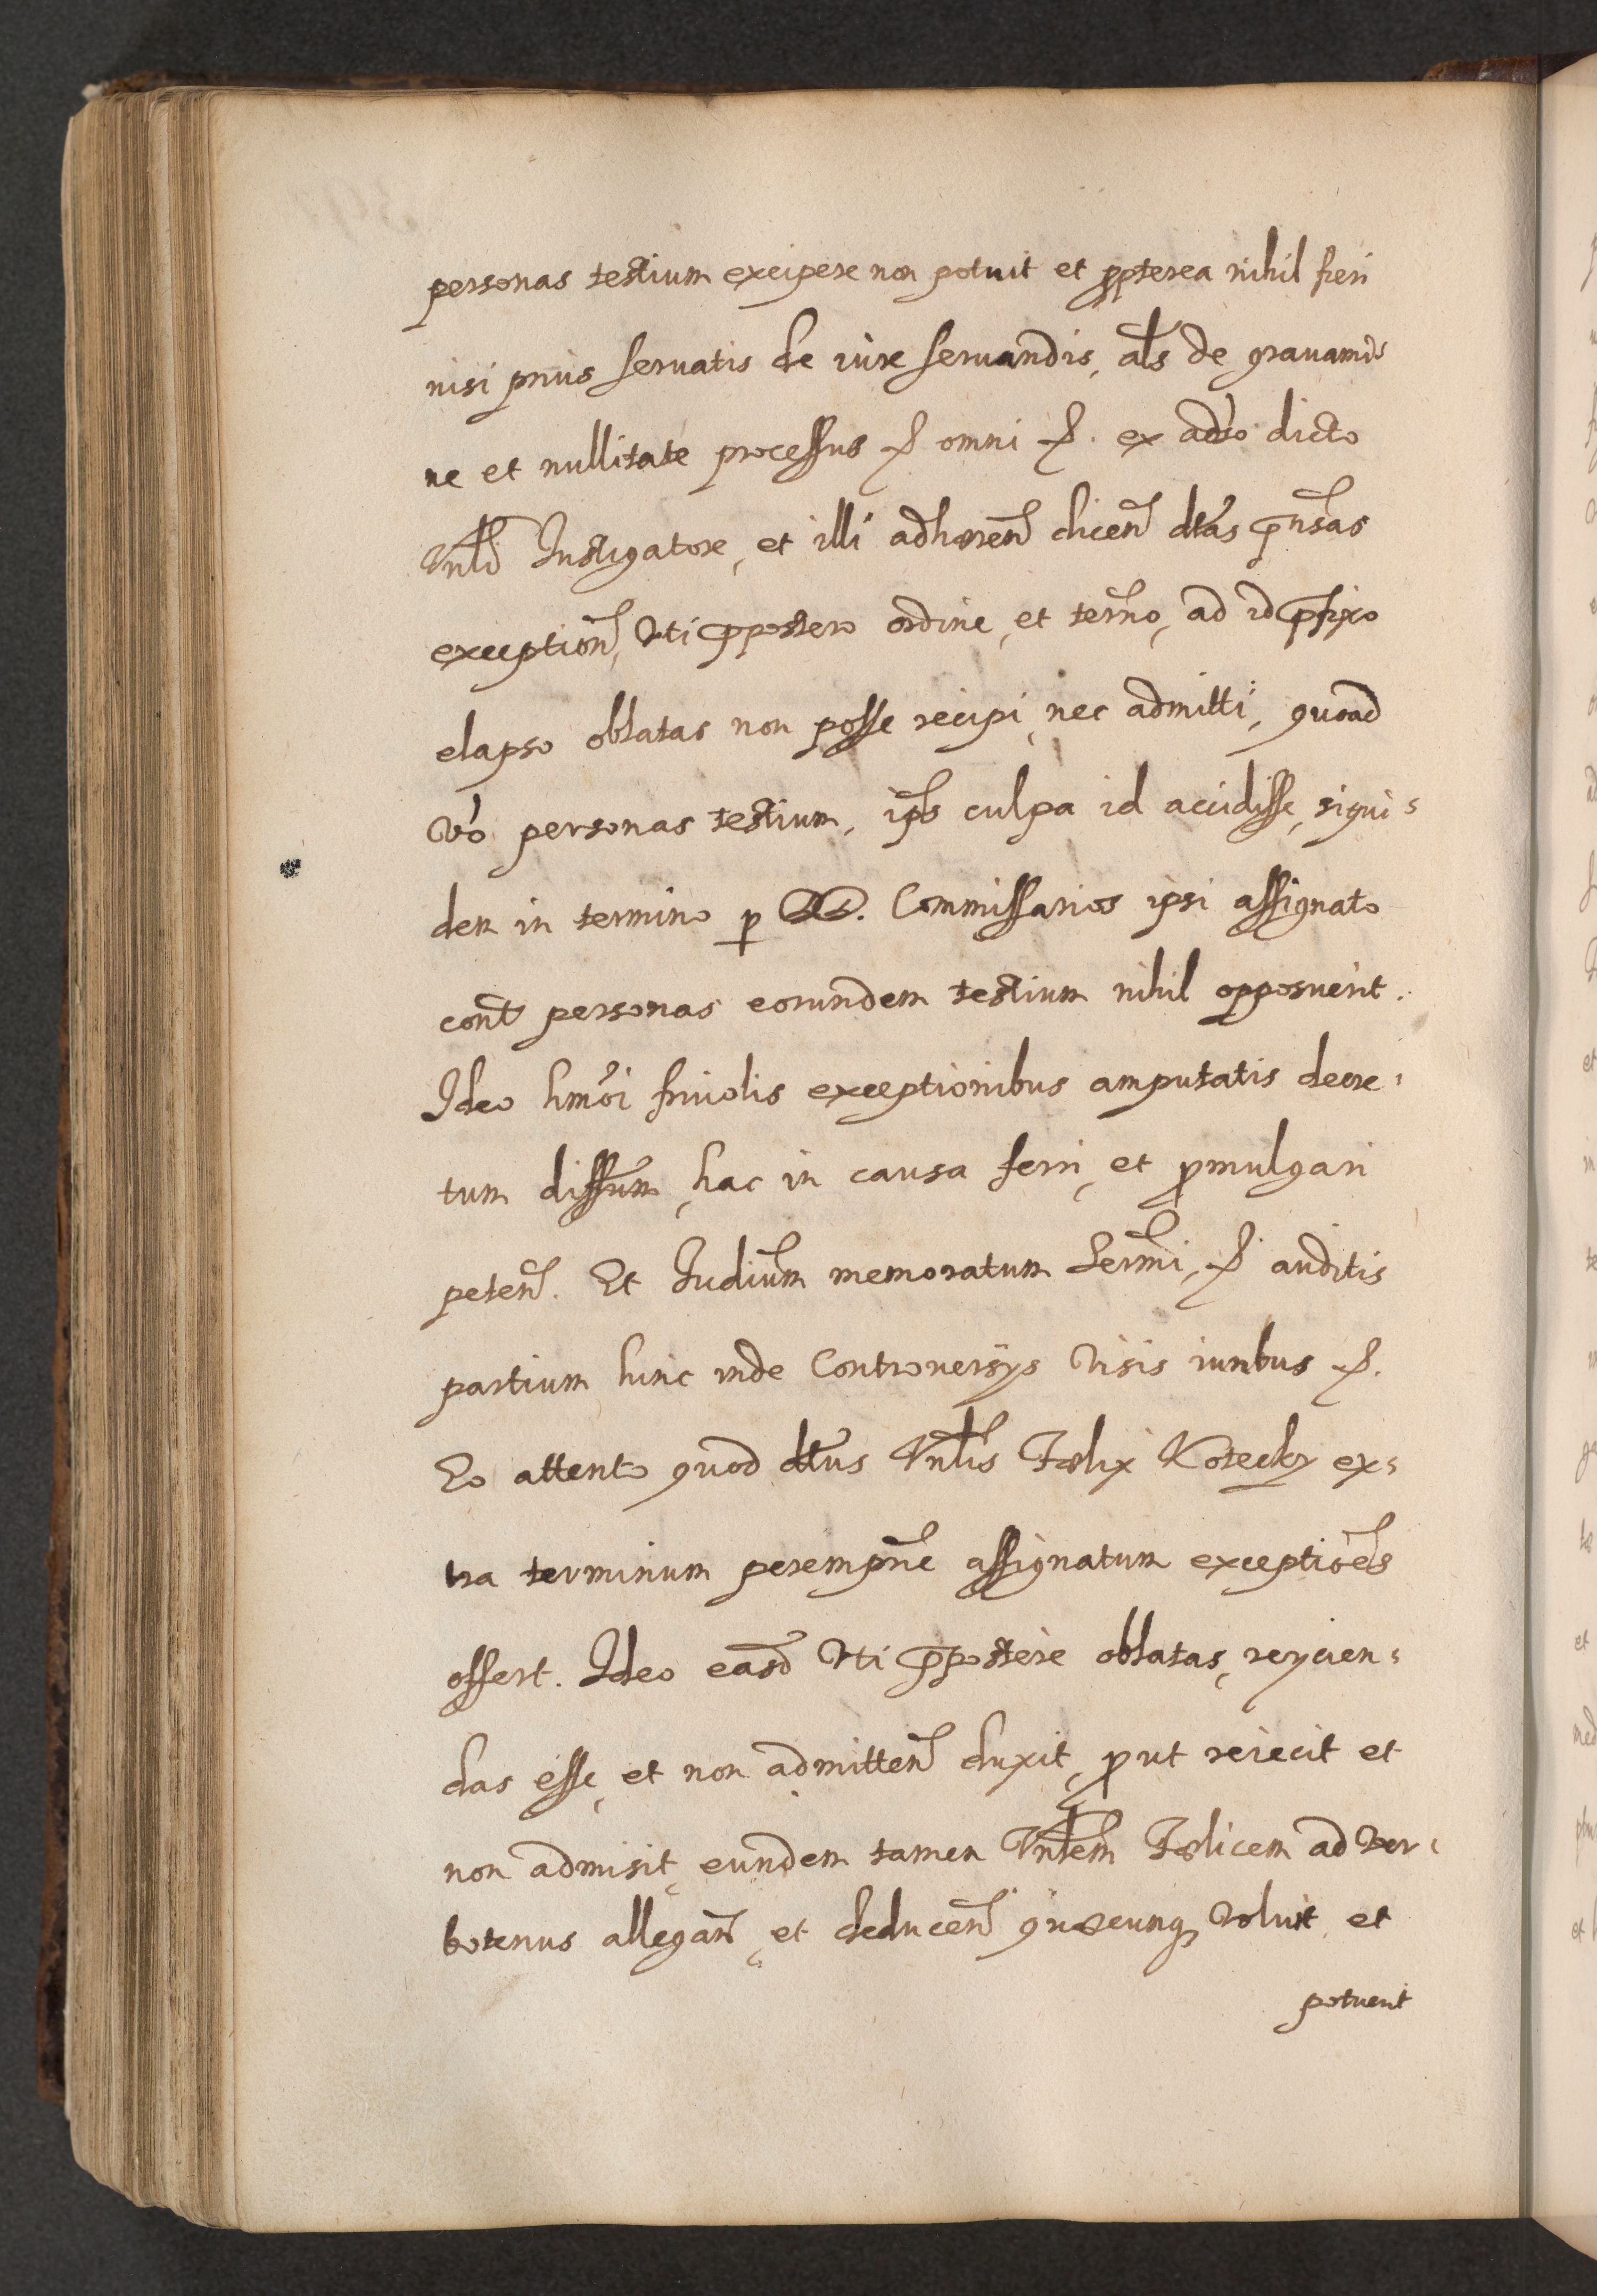 personas testium excipere non potuit et ꝓpterea nihil fieri
nisi prius servatis de iure servandis, als de gravami=
ne et nullitate processus p omni p. ex adṽo dicto
Vnli Instigatore, et illi adhæren̄ dicen̄ dtas pn̄tas
exception̄, Vti p̄postero ordine, et term̄o, ad id p̄fixo
elapso oblatas non posse recipi, nec admitti, quoad
Vo personas testium, ipīs culpa id accidisse, siqui=
dem in termino ꝑ DD. Commissarios ipsi assignato
cont̄ personas eorundem testium nihil opposuerit.
Ideo hm̄oi frivolis exceptionibus amputatis decre=
tum diff̄um, hac in causa ferri, et ꝓmulgari
peten̄. Et Iudiu̅m memoratum Serm̄i, p auditis
partium hinc inde Controversijs Visis iuribus p.
Eo attento quod dtus Vnlis Fælix Kotecky ex=
tra terminum perempn̄e assignatum exceptiōes
offert. Ideo easd̄ Vti p̄postere oblatas, reijcien=
das esse, et non admitten̄ duxit, ꝓut reiecit et
non admisit, eundem tamen Vnlem Fælicem ad Ver=
botenus allegan̄, et deducen̄ quæcunqꝫ Voluit, et
potuerit